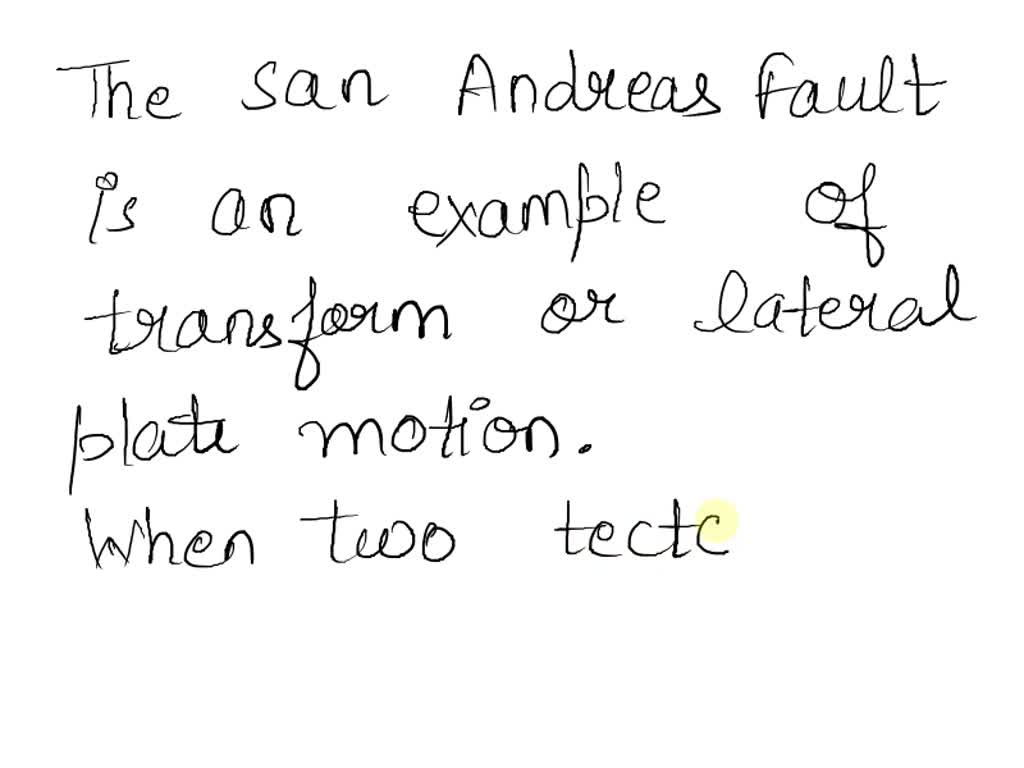 The San Andreas Fault
is an example of
transform or lateral
plate motion.
When two tectc